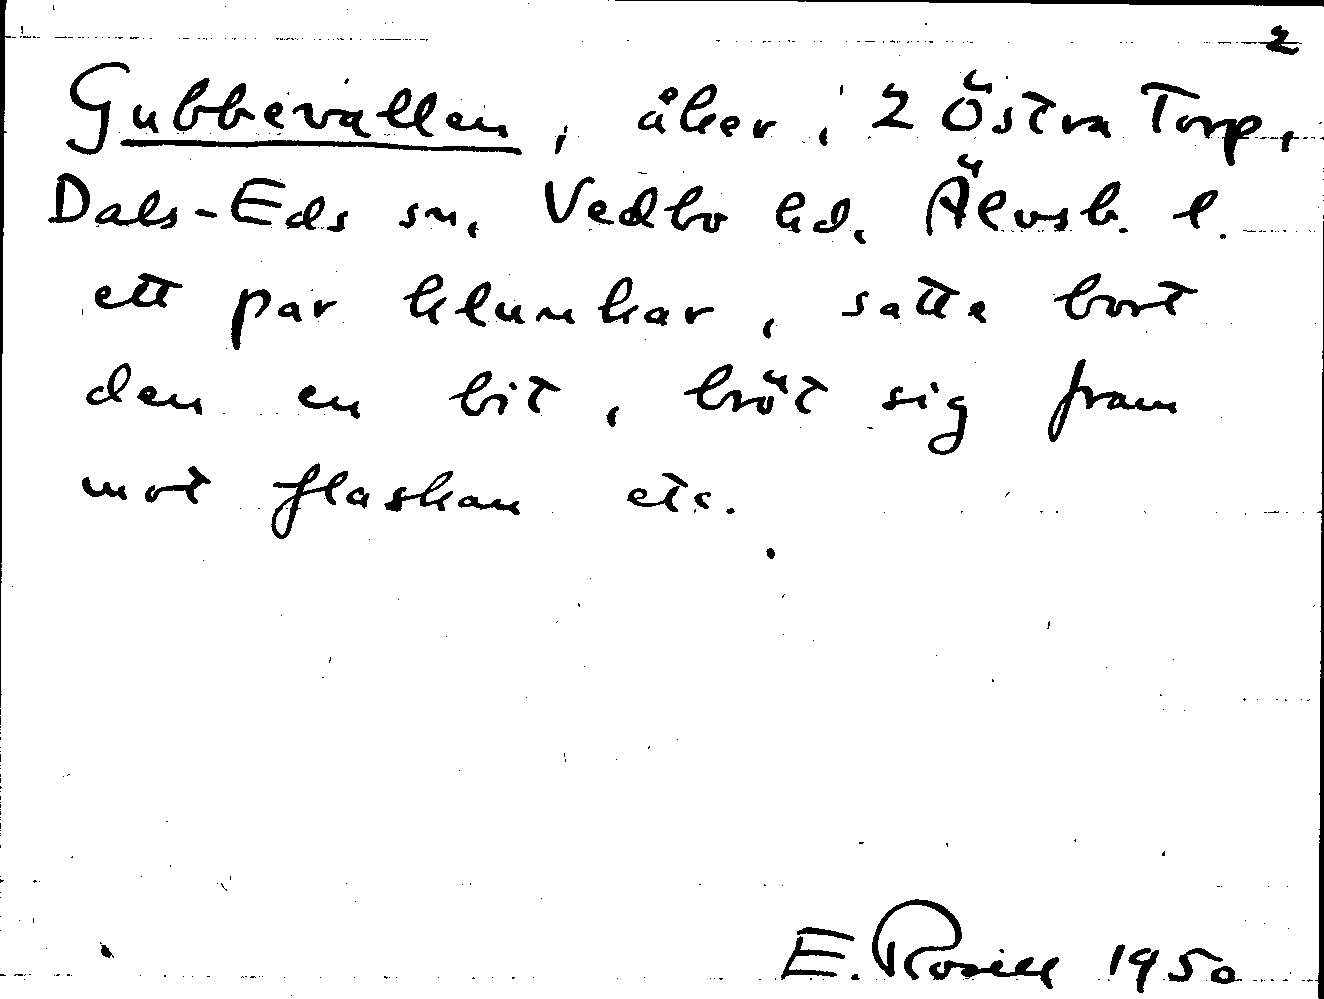 2
Gubbevallen, åker, 2 Östra Torp,
Dals-Eds sn, Vedbo hd, Älvsb. l.
ett par klunkar, satte bort
den en bit, bröt sig fram
mot flaskan etc.
E. Rosell 1950